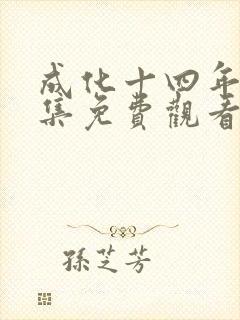 成化十四年
集免費觀看
孫芝芳